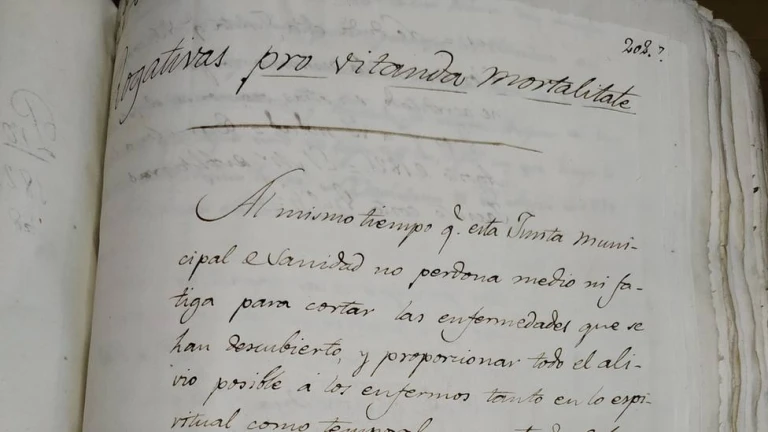 208.
Rogativas pro vitanda mortalitate
Al mismo tiempo q.e esta Junta muni-
cipal de Sanidad no perdona medio ni fa-
tiga para cortar las enfermedades que se
han descubierto, y proporcionar todo el ali-
vio posible á los enfermos tanto en lo espi-
ritual como temporal